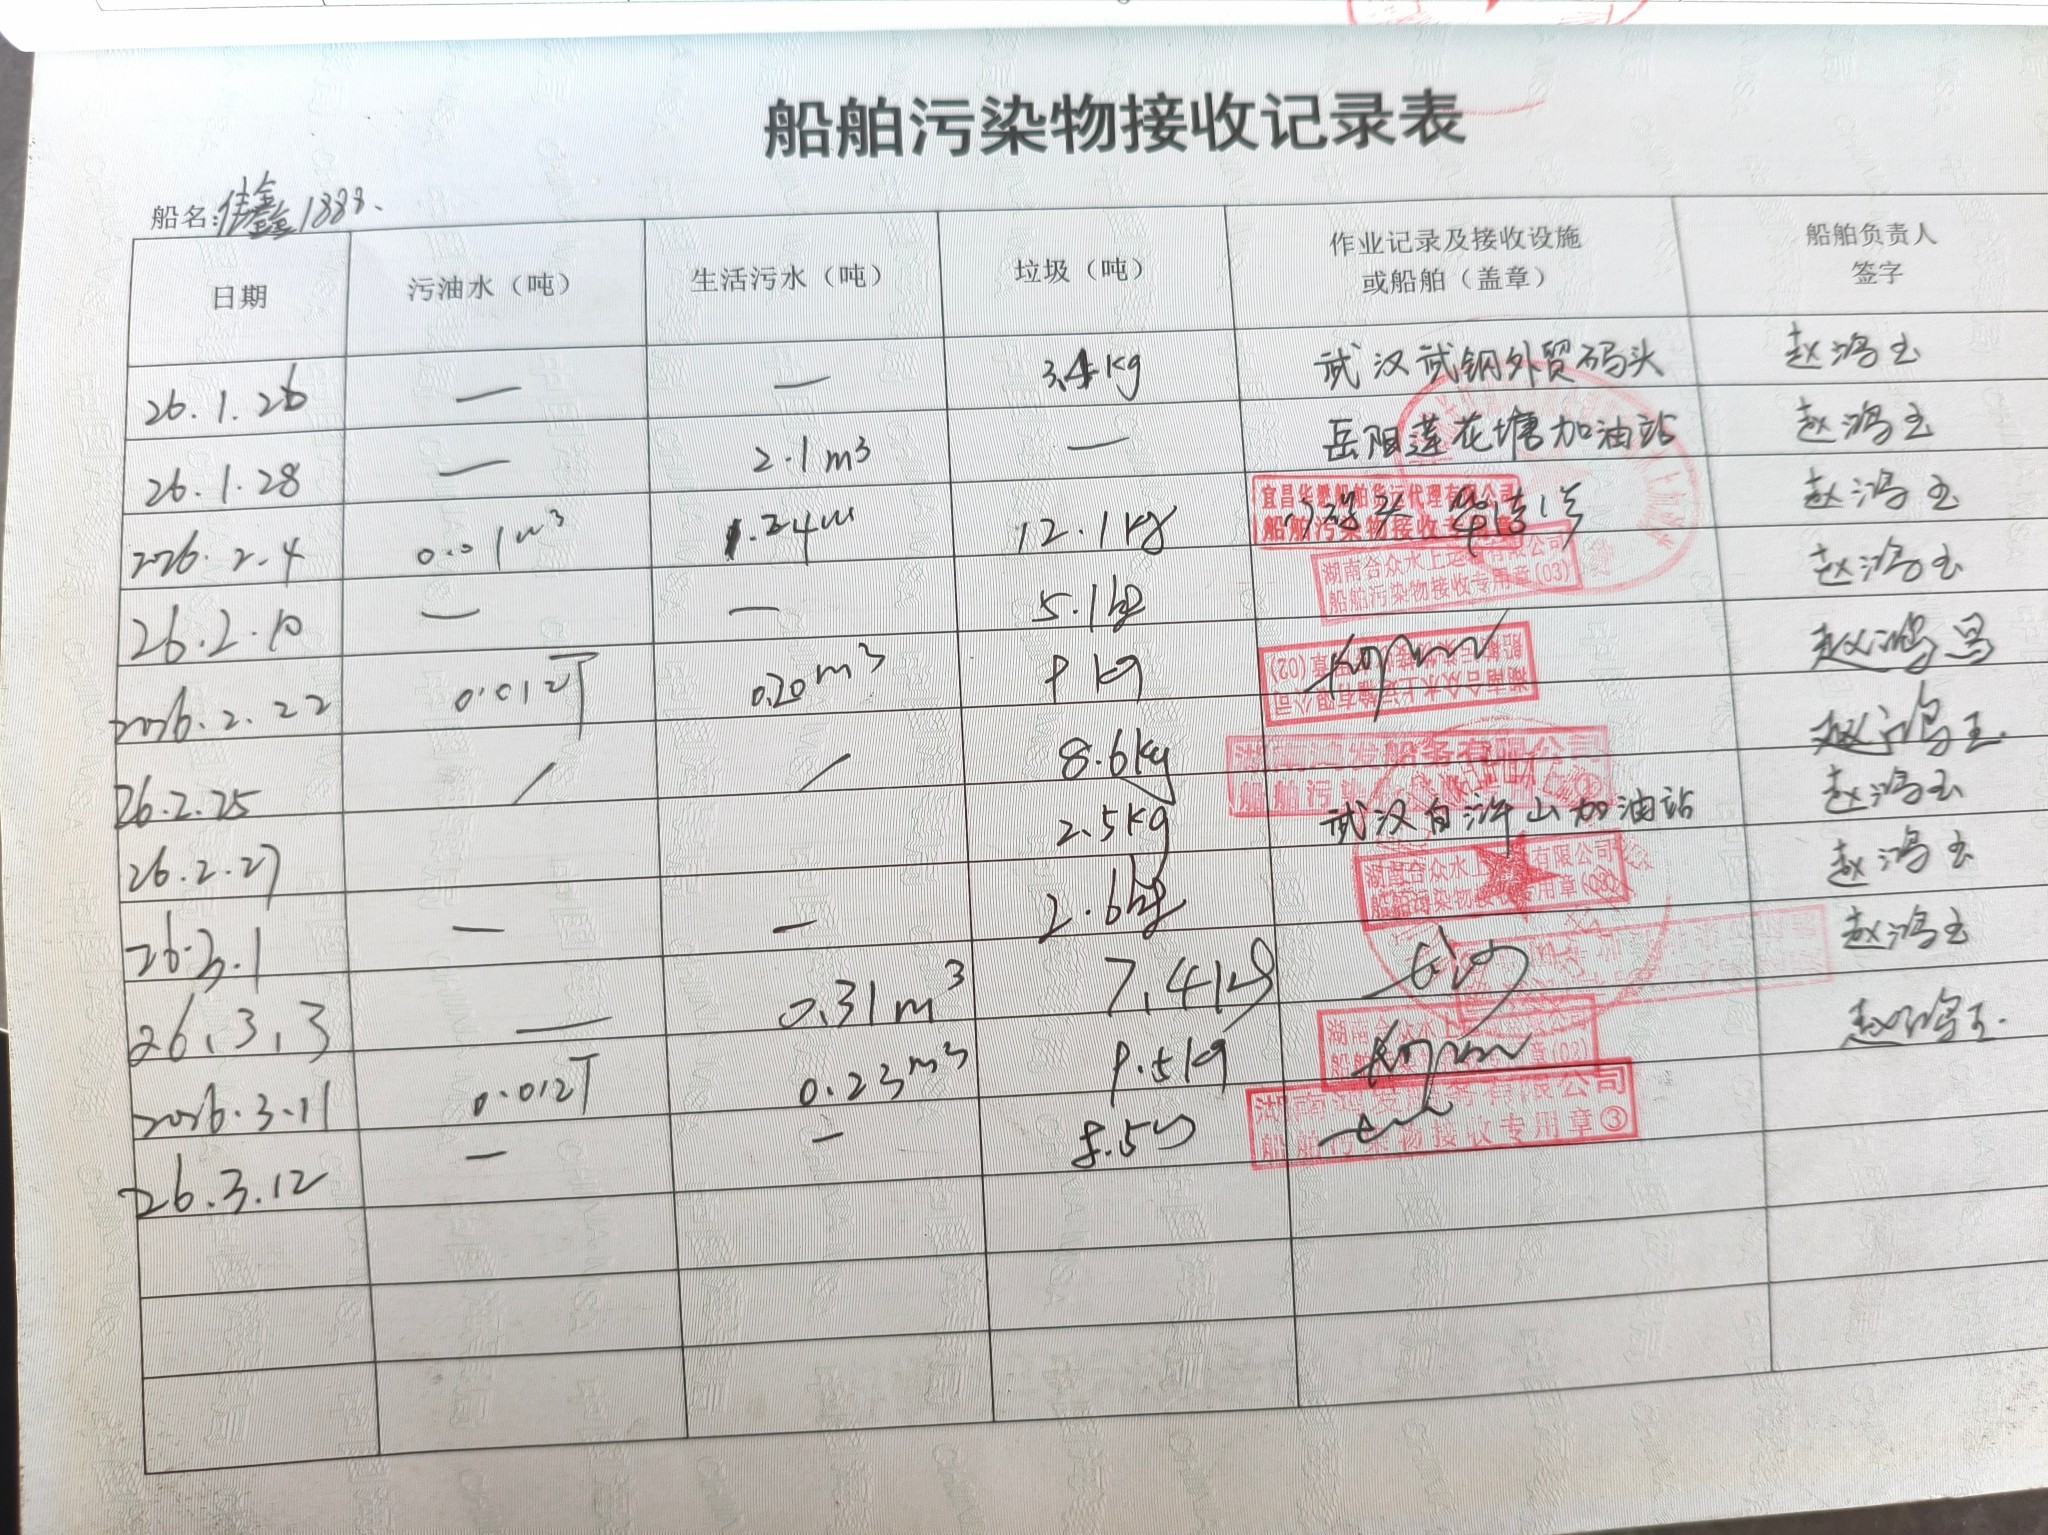 船舶污染物接收记录表
船名:佳鑫1888.
日期 污油水（吨） 生活污水（吨） 垃圾（吨） 作业记录及接收设施或船舶（盖章） 船舶负责人签字
26.1.26 — — 3.4kg 武汉武钢外贸码头 赵鸿玉
26.1.28 — 2.1m³ — 岳阳莲花塘加油站 赵鸿玉
2026.2.4 0.01m³ 1.24m 12.1kg 宜昌华懋船舶货运代理有限公司 船舶污染物接收专用章 赵鸿玉
26.2.10 — — 5.1kg 湖南合众水上运输有限公司 船舶污染物接收专用章(03) 赵鸿玉
2026.2.22 0.012T 0.20m³ 9kg 湖南合众水上运输有限公司 船舶污染物接收专用章(02) 赵鸿
26.2.25 / / 8.6kg 湖南鸿发船务有限公司 船舶污染 赵鸿玉
26.2.27 2.5kg 武汉白浒山加油站 赵鸿玉
26.3.1 — — 2.6kg 湖南合众水上 有限公司 船舶污染物接收专用章 赵鸿玉
26.3.3 — 0.31m³ 7.4kg 赵鸿玉
2026.3.11 0.012T 0.23m³ 9.5kg 湖南合众水上 章(03) 赵鸿玉.
26.3.12 — — 8.5 湖南鸿发船务有限公司 船舶污染物接收专用章③